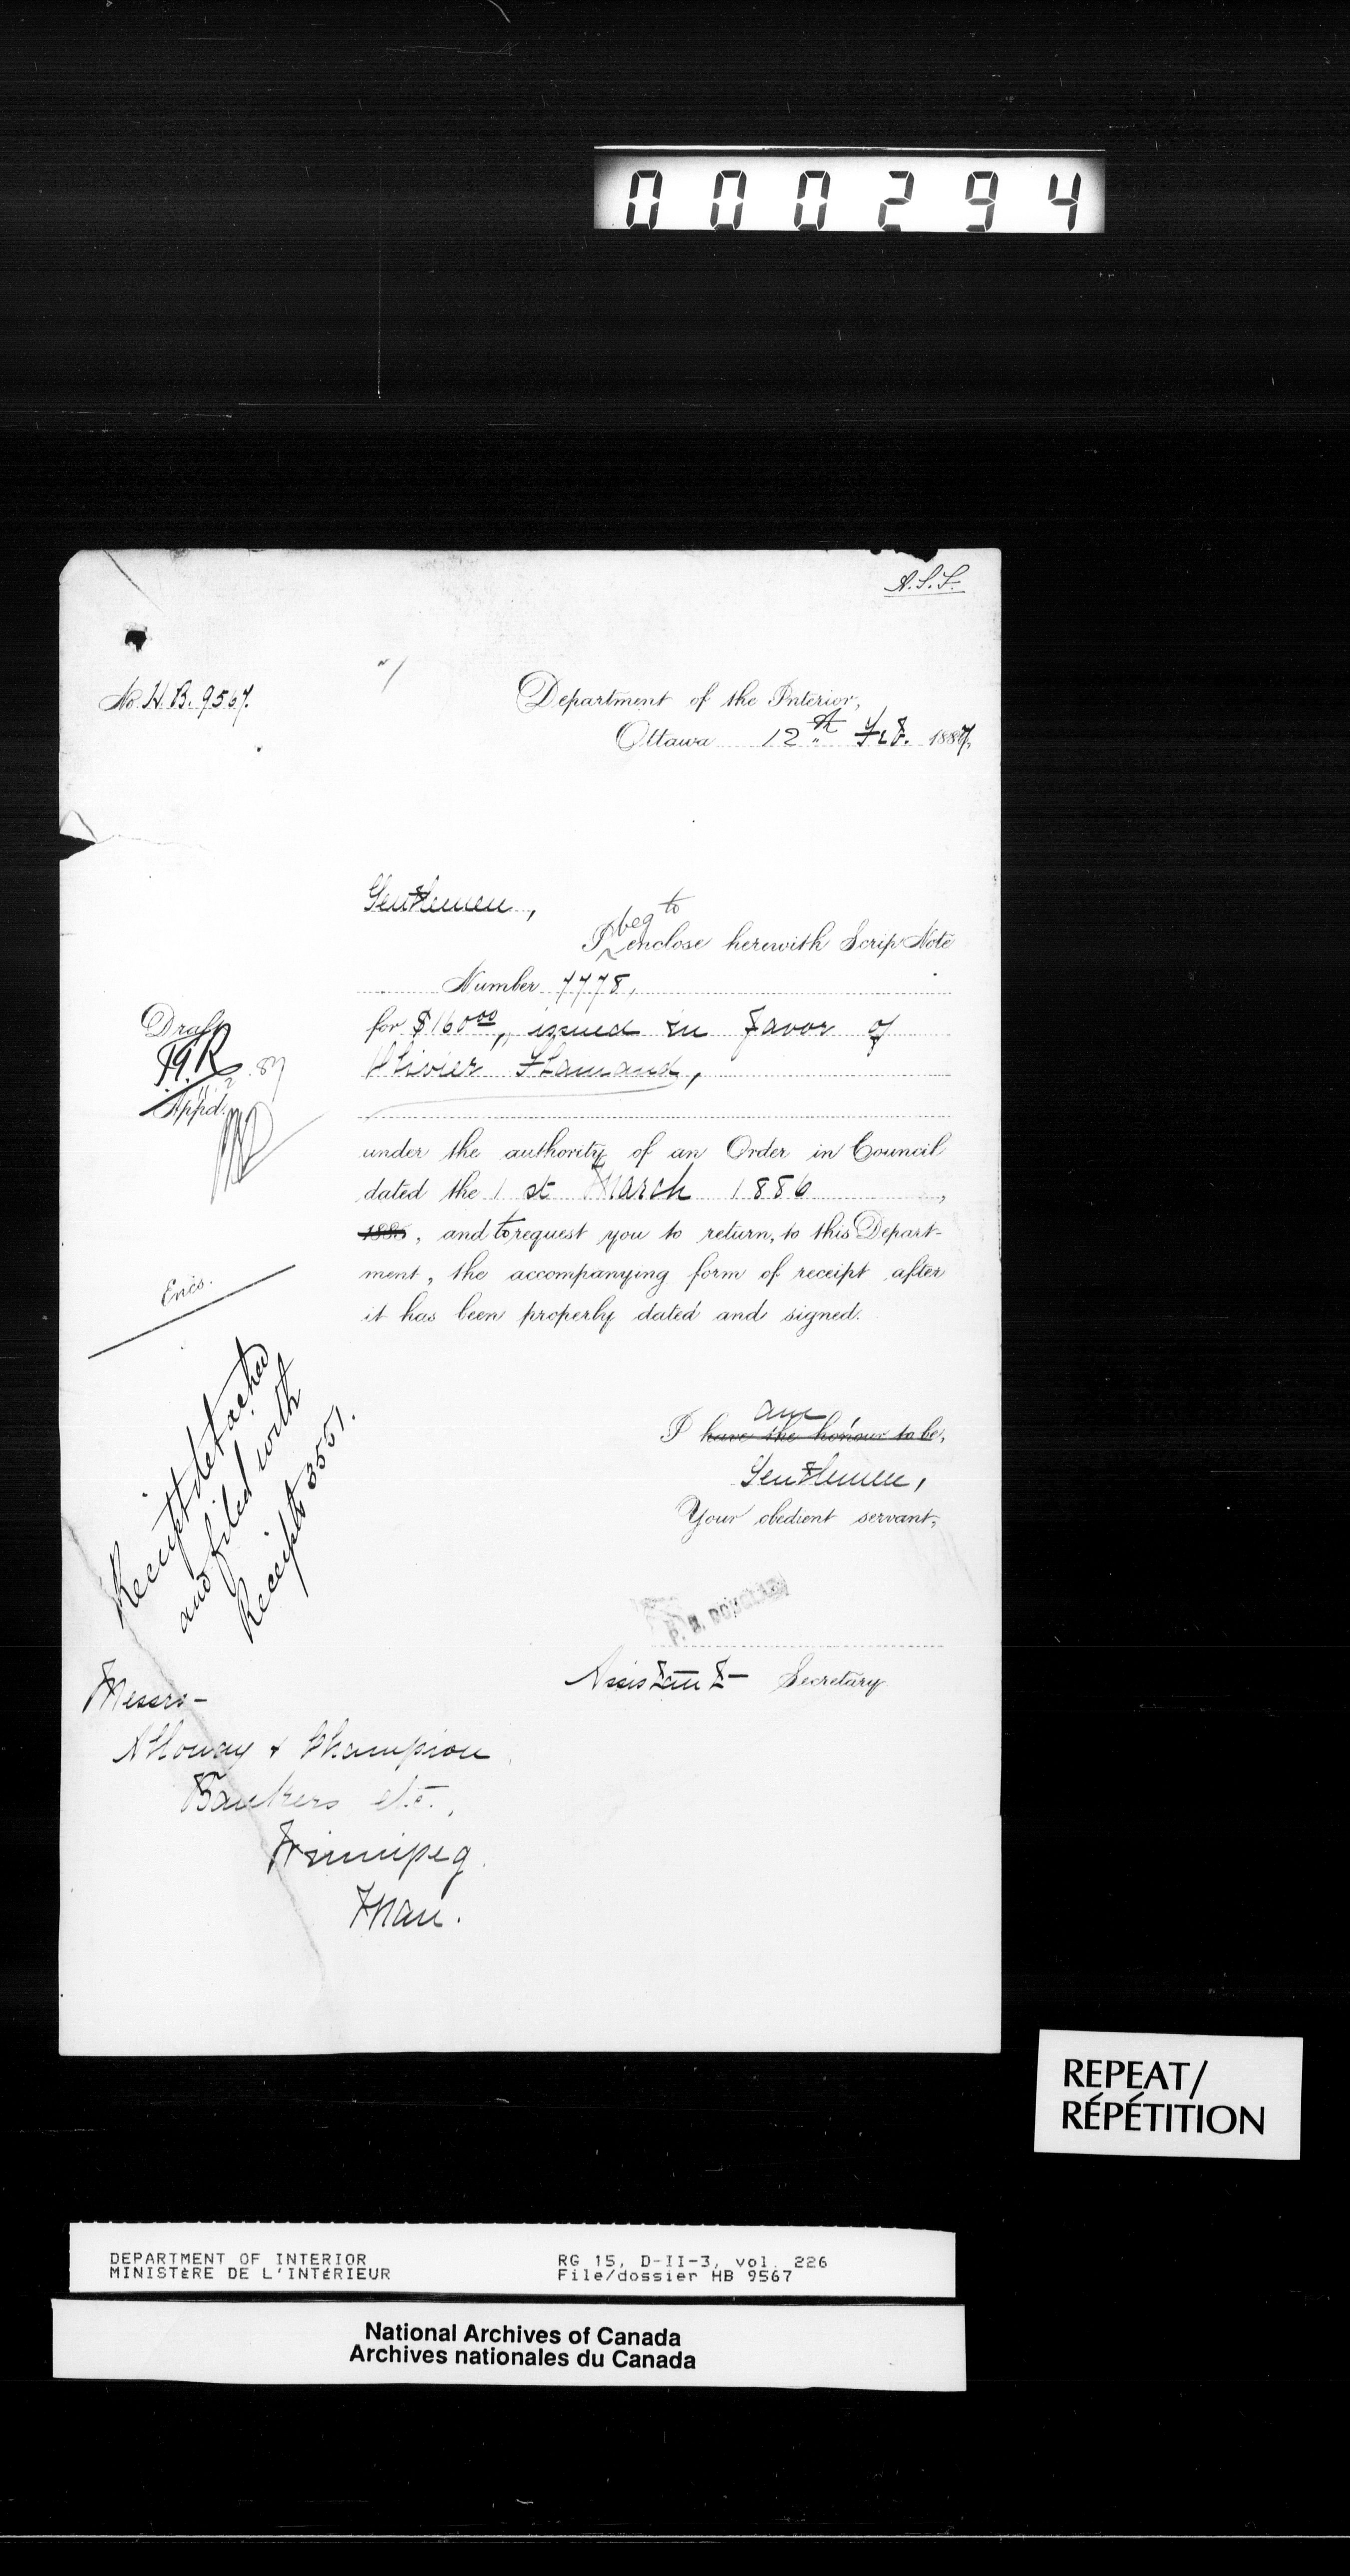 000294
A.S.S.
No. H.B. 9567.
Department of the Interior,
Ottawa 12th Feb. 1887.
Gentlemen,
beg to
I enclose herewith Scrip Note
Number 7778,
for $160.00, issued in favor of
Olivier Flamand,
under the authority of an Order in Council
dated the 1st March 1886,
1886, and to request you to return, to this Depart-
ment, the accompanying form of receipt after
it has been properly dated and signed.
Draft
Appd.
Encs.
Receipt detached
and filed with
Receipts 3551.
am
I have the honour to be,
Gentlemen,
Your obedient servant,
P. B. DOUGLAS
Assistant Secretary
Messrs-
Alloway & Champion
Bankers etc.,
Winnipeg.
Man.
REPEAT/
RÉPÉTITION
DEPARTMENT OF INTERIOR
MINISTÈRE DE L'INTÉRIEUR
RG 15, D-II-3, vol. 226
File/dossier HB 9567
National Archives of Canada
Archives nationales du Canada